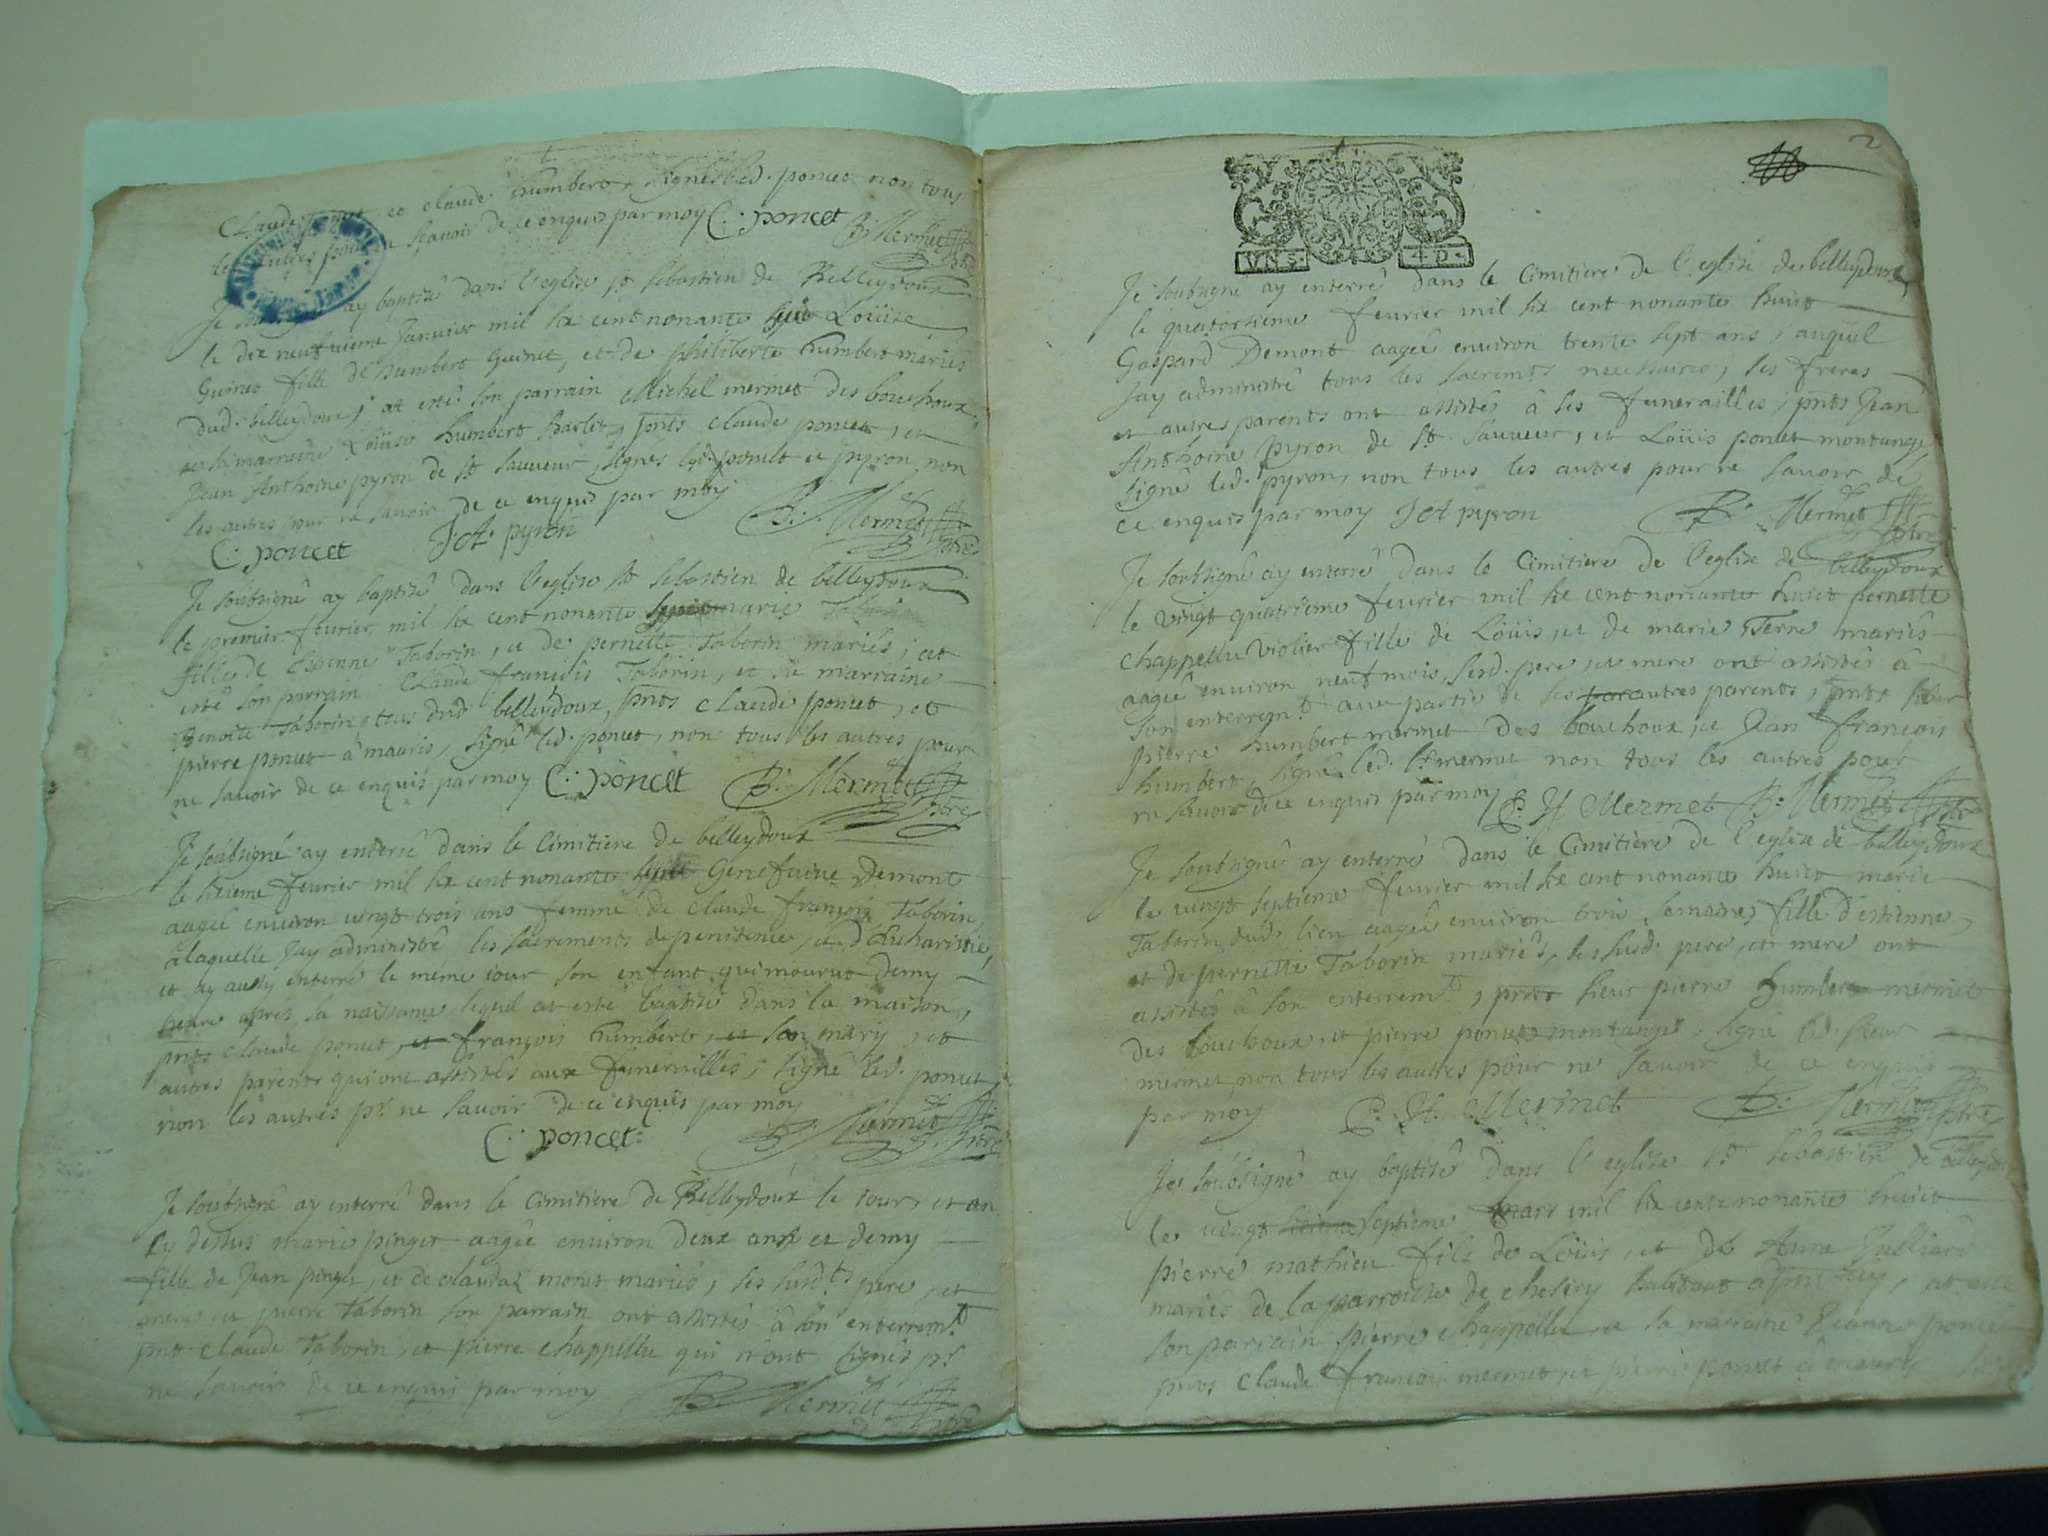 Claude et claude humbert, signés led. poncet non tous
les autres pour ne sçavoir de ce enquis par moy C: poncet B: Mermet ptre
Je soubsigné ay baptisé dans l'eglise st sebastien de Belleydoux
le dix neufvieme Janvier mil six cent nonante huit Loüise
Guinet fille de humbert Guinet, et de philiberte humbert mariés
dud. belleydoux, at esté son parrain Michel mermet des bouchoux
et sa marraine Loüise humbert harlet, pnts claude poncet, et
Jean Anthoine pyron de st sauveur, signés led. poncet et pyron non
les autres pour ne savoir de ce enquis par moy B: Mermet ptre
C: poncet J. A. pyron
Je soubsigné ay baptisé dans l'eglise st sebastien de belleydoux
le premier febvrier mil six cent nonante huit marie Taborin
fille de Estienne Taborin, et de pernette Taborin mariés, at
esté son parrain Claude françois Taborin, et sa marraine
Benoite Taborin, tous dud. belleydoux, pnts claude poncet, et
pierre poncet à mauris, signé led. poncet, non tous les autres pour
ne savoir de ce enquis par moy C: poncet B: Mermet ptre
Je soubsigné ay enterré dans le cimitiere de belleydoux
le sixieme febvrier mil six cent nonante huit Genefvieve Demont
aagée environ vingt trois ans femme de claude françois Taborin,
à laquelle Jay administré les sacrements de penitence, et d'Eucharistie,
et ay aussy enterré le même iour son enfant qui mourut demy
heure apres sa naissance lequel at esté baptisé dans la maison,
pnts claude poncet, et françois humbert, et son mary, et
autres parents qui ont assistés aux funerailles, signé led. poncet,
non les autres pr. ne savoir de ce enquis par moy
C: poncet: B: Mermet ptre
Je soubsigné ay enterré dans le cimitiere de Belleydoux le iour, et an
cy dessus marie pinget aagée environ deux ans et demy
fille de Jean pinget, et de claudaz moret mariés, les susdts pere, et
mere, et pierre Taborin son parrain ont assistés à son enterremt
pnt claude Taborin, et pierre chappellu qui n'ont signés pr.
ne savoir de ce enquis par moy B: Mermet ptre
2
VN S. 4 D.
Je soubsigné ay enterré dans le cimitiere de l'eglise de belleydoux
le quatorsieme febvrier mil six cent nonante huict
Gaspard Demont aagée environ trente sept ans, auquel
Jay administré tous les sacremts necessaires, ses freres
et autres parents ont assistés à ses funerailles, pnts Jean
Anthoine pyron de st. sauveur, et Loüis poncet montange
signé led. pyron, non tous les autres pour ne savoir de
ce enquis par moy J A pyron B: Mermet ptre
Je soubsigné ay enterré dans le cimitiere de l'eglise de belleydoux
le vingt quatrieme febvrier mil six cent nonante huict pernette
chappellu violier fille de Loüis, et de marie Terne mariés
aagée environ neuf mois, sesd. pere, et mere ont assistés à
son enterremt. avec partie de ses autres parents, pnts sieur
pierre humbert mermet des bouchoux, et Jean françois
humbert, signé led. sr. mermet non tous les autres pour
ne savoir de ce enquis par moy P. H Mermet B: Mermet ptre
Je soubsigné ay enterré dans le cimitiere de l'eglise de belleydoux
le vingt septieme febvrier mil six cent nonante huict marie
Taborin dud. lieu aagée environ trois semaines, fille d'estienne,
et de pernette Taborin mariés, les susd. pere, et mere ont
assistés à son enterremt., pnts sieur pierre humbert mermet
des bouchoux, et pierre poncet montange, signé led. sieur
mermet non tous les autres pour ne savoir de ce enquis
par moy P. H. Mermet B: Mermet ptre
Je soubsigné ay baptisé dans l'eglise st sebastien de belleydoux
le vingt septieme mars mil six cent nonante huict
pierre mathieu fils de Loüis, et de Anne Julliard
mariés de la parroisse de chesery habitant at esté
son parrain pierre chappellu, et sa marraine poncet
pnts claude françois mermet, et pierre poncet à mauris